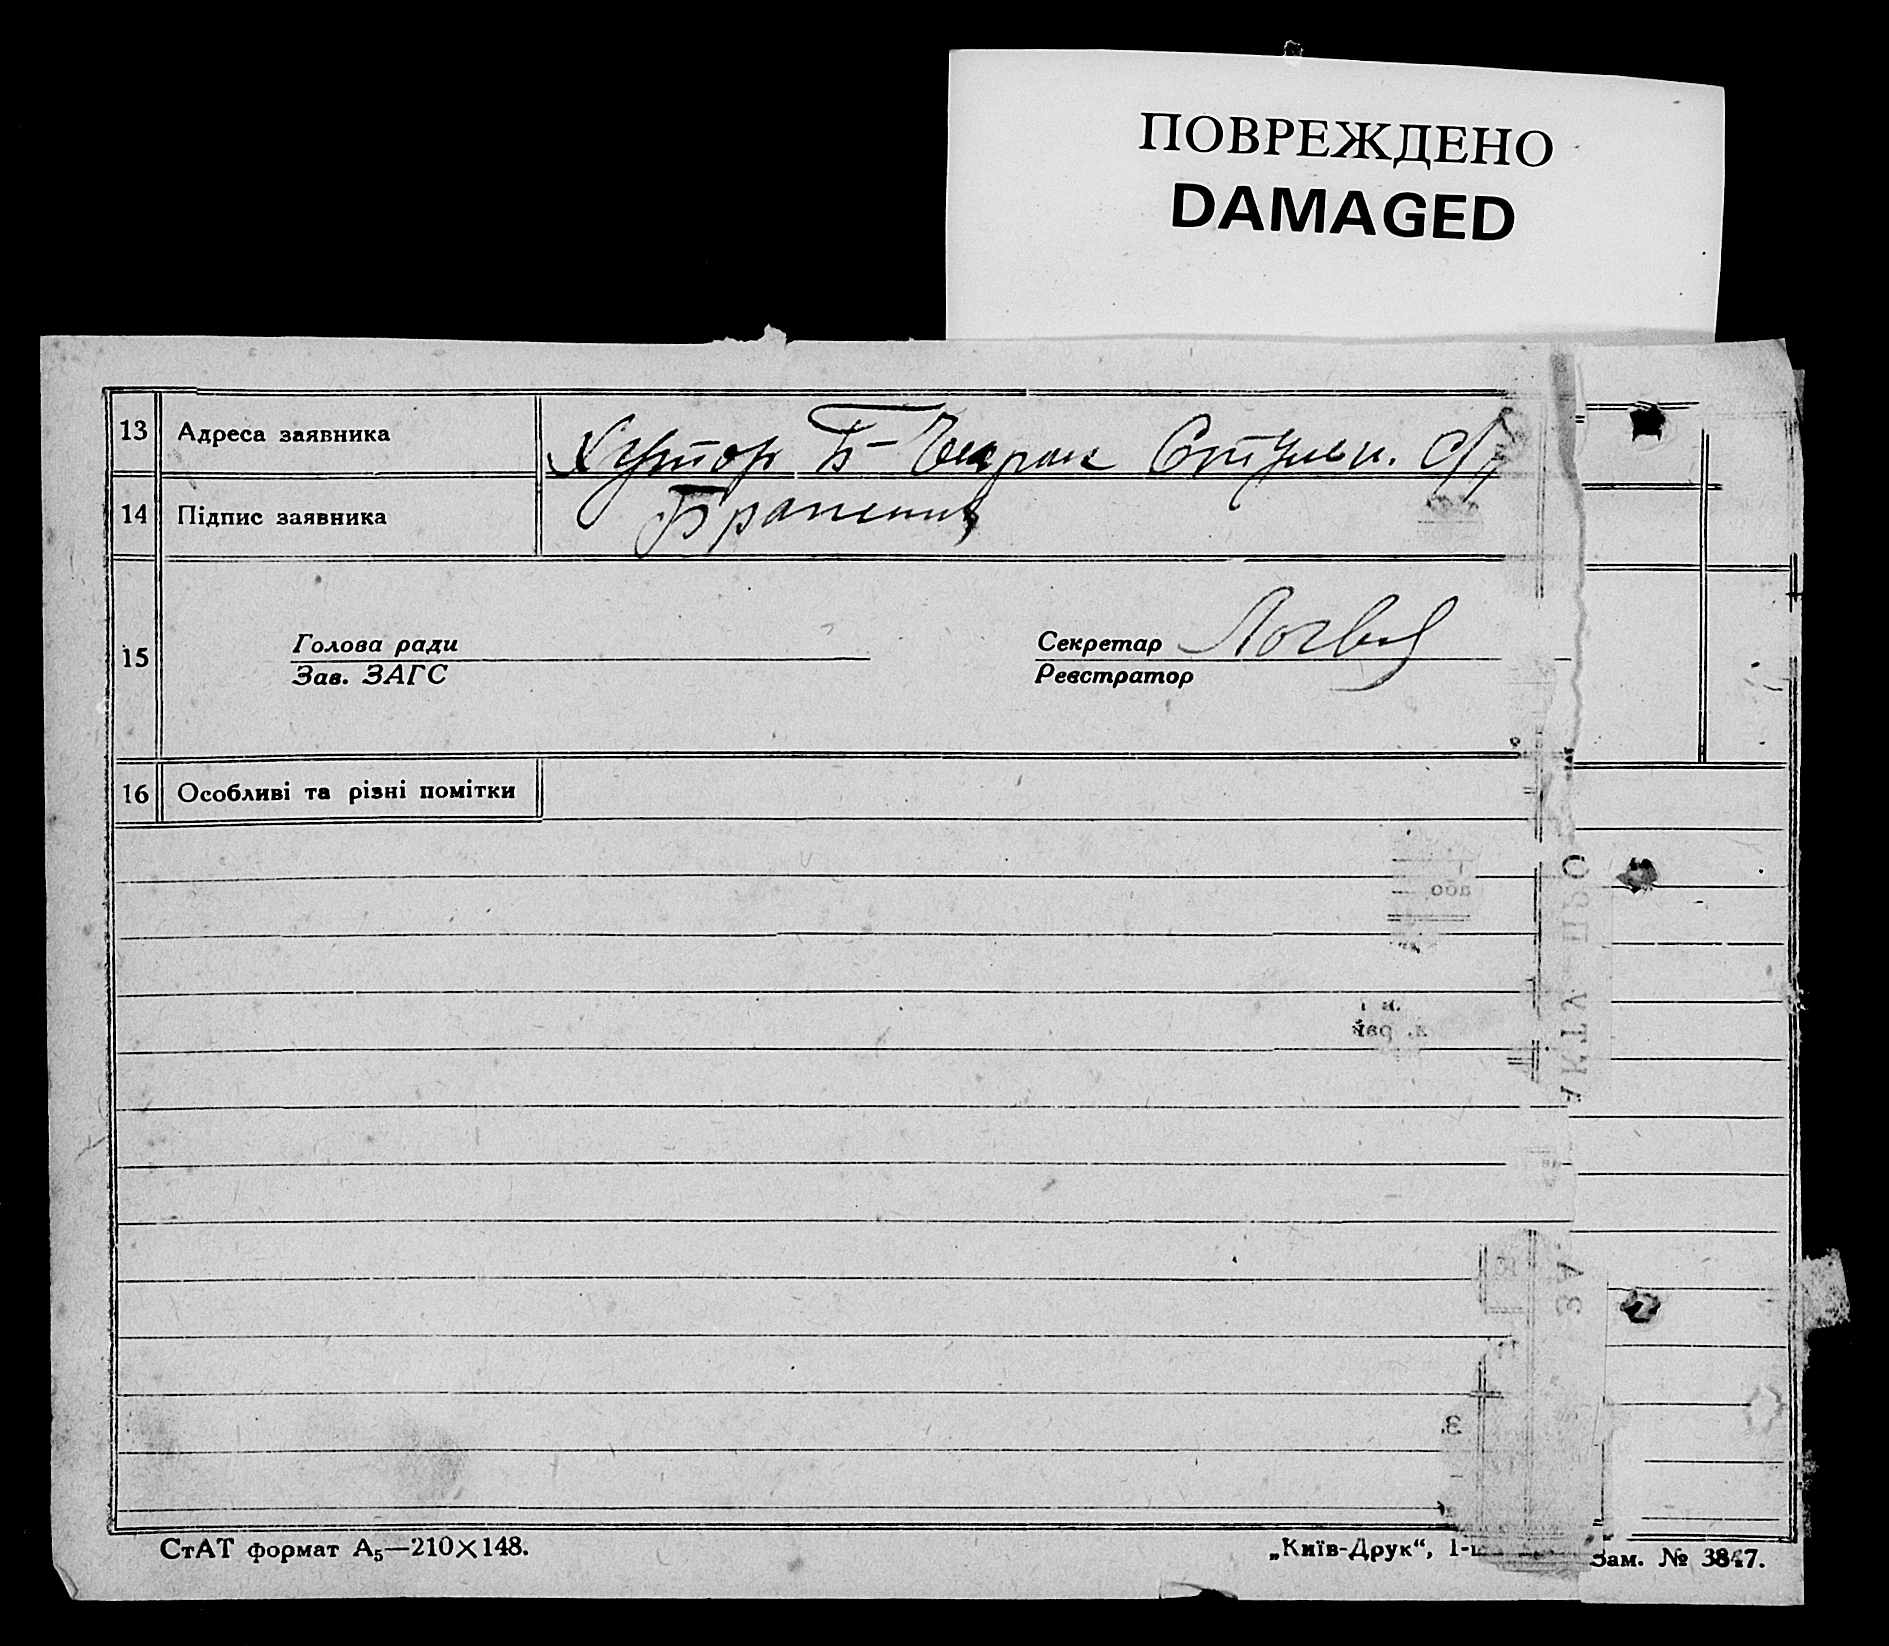 ПОВРЕЖДЕНО
DAMAGED
13 Адреса заявника Хутор Б- с/р
14 Підпис заявника
15 Голова ради Секретар
Зав. ЗАГС Реєстратор
16 Особливі та різні помітки
або
рай
АКТУ ПРО
ЗА
З.
СтАТ формат А₅—210×148.
„Київ-Друк“, 1- Зам. № 3847.